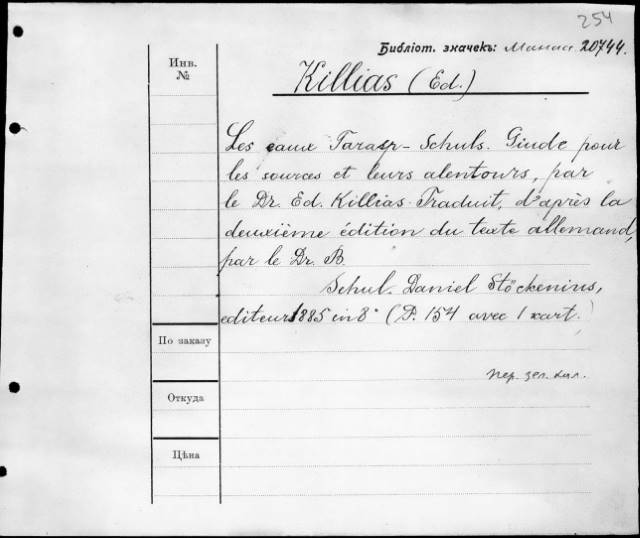 254
Библіот. значекъ: 20744.
Инв.
№
Killias (Ed.)
Les eaux Tarasp-Schuls. Giude pour
les sources et leurs alentours, par
le Dr. Ed. Killias. Traduit, d'après la
deuxième édition du texte allemand,
par le Dr. B.
Schul. Daniel Stöckenius,
editeur 1885 in 8° (P. 154 avec 1 kart.)
По заказу
Откуда
Цѣна